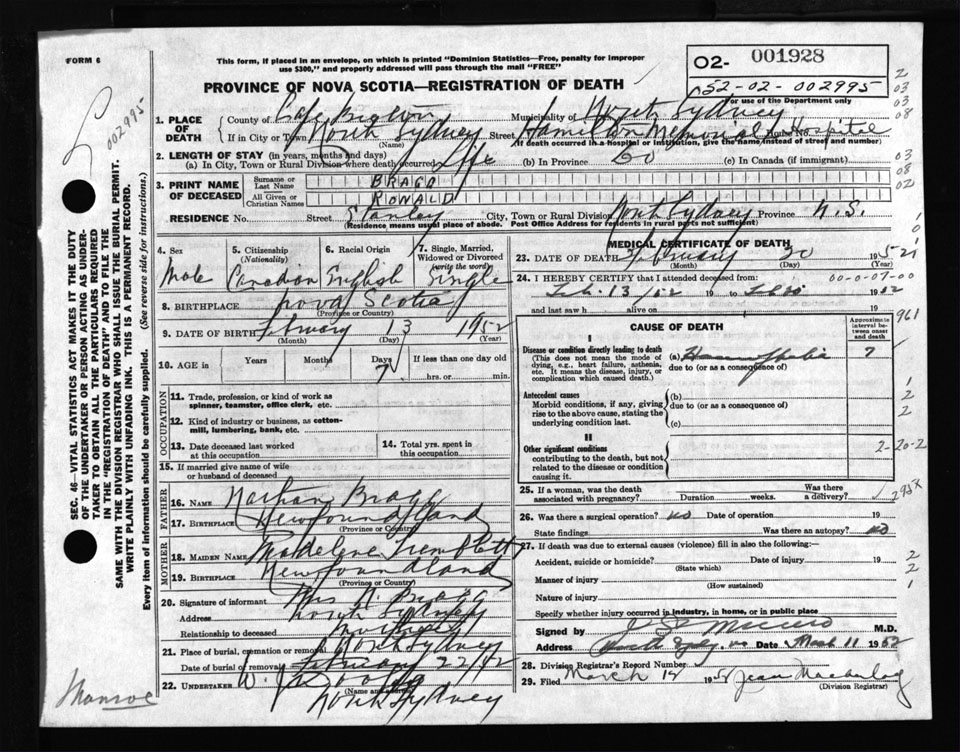 FORM 6
This form, if placed in an envelope, on which is printed "Dominion Statistics—Free, penalty for improper
use $300," and properly addressed will pass through the mail "FREE"
O2- 001928
52-02-002995
For use of the Department only
PROVINCE OF NOVA SCOTIA—REGISTRATION OF DEATH
002995
1. PLACE OF DEATH
County of Cape Breton Municipality of North Sydney
If in City or Town North Sydney Street Hamilton Memorial Hospital
(Name) (If death occurred in a hospital or institution, give the name instead of street and number)
2. LENGTH OF STAY (in years, months and days)
(a) In City, Town or Rural Division where death occurred Life (b) In Province (c) In Canada (if immigrant)
3. PRINT NAME OF DECEASED
Surname or Last Name BRAGG
All Given or Christian Names RONALD
RESIDENCE No. Street Stanley City, Town or Rural Division North Sydney Province N.S.
(Residence means usual place of abode. Post Office Address for residents in rural parts not sufficient)
4. Sex Male
5. Citizenship (Nationality) Canadian
6. Racial Origin English
7. Single, Married, Widowed or Divorced (write the word) Single
8. BIRTHPLACE Nova Scotia
(Province or Country)
9. DATE OF BIRTH February 13 1952
(Month) (Day) (Year)
10. AGE in Years Months Days 7 If less than one day old
hrs. or min.
OCCUPATION
11. Trade, profession, or kind of work as spinner, teamster, office clerk, etc.
12. Kind of industry or business, as cotton-mill, lumbering, bank, etc.
13. Date deceased last worked at this occupation
14. Total yrs. spent in this occupation
15. If married give name of wife or husband of deceased
FATHER
16. NAME Nathan Bragg
17. BIRTHPLACE Newfoundland
(Province or Country)
MOTHER
18. MAIDEN NAME Madelene Tremblett
19. BIRTHPLACE Newfoundland
(Province or Country)
20. Signature of informant Mrs N. Bragg
Address North Sydney
Relationship to deceased Mother
21. Place of burial, cremation or removal North Sydney
Date of burial or removal February 22/52
22. UNDERTAKER W.
(Name and address)
North Sydney
MEDICAL CERTIFICATE OF DEATH
23. DATE OF DEATH February 20 1952
(Month) (Day) (Year)
24. I HEREBY CERTIFY that I attended deceased from:
Feb. 13/52 19 to Feb 20 1952
and last saw h alive on 19
CAUSE OF DEATH
Approximate interval between onset and death
I
Disease or condition directly leading to death
(This does not mean the mode of dying, e.g., heart failure, asthenia, etc. It means the disease, injury, or complication which caused death.)
(a)
due to (or as a consequence of)
Antecedent causes
Morbid conditions, if any, giving rise to the above cause, stating the underlying condition last.
(b)
due to (or as a consequence of)
(c)
II
Other significant conditions
contributing to the death, but not related to the disease or condition causing it.
25. If a woman, was the death associated with pregnancy? Duration weeks. Was there a delivery?
26. Was there a surgical operation? no Date of operation 19
State findings Was there an autopsy? no
27. If death was due to external causes (violence) fill in also the following:
Accident, suicide or homicide? Date of injury 19
(State which)
Manner of injury
(How sustained)
Nature of injury
Specify whether injury occurred in industry, in home, or in public place
Signed by M.D.
Address Date March 11 1952
28. Division Registrar's Record Number
29. Filed March 12 195
(Division Registrar)
SEC. 46—VITAL STATISTICS ACT MAKES IT THE DUTY
OF THE UNDERTAKER OR PERSON ACTING AS UNDER-
TAKER TO OBTAIN ALL THE PARTICULARS REQUIRED
IN THE "REGISTRATION OF DEATH" AND TO FILE THE
SAME WITH THE DIVISION REGISTRAR WHO SHALL ISSUE THE BURIAL PERMIT.
WRITE PLAINLY WITH UNFADING INK. THIS IS A PERMANENT RECORD.
Every item of information should be carefully supplied. (See reverse side for instructions.)
Munroe